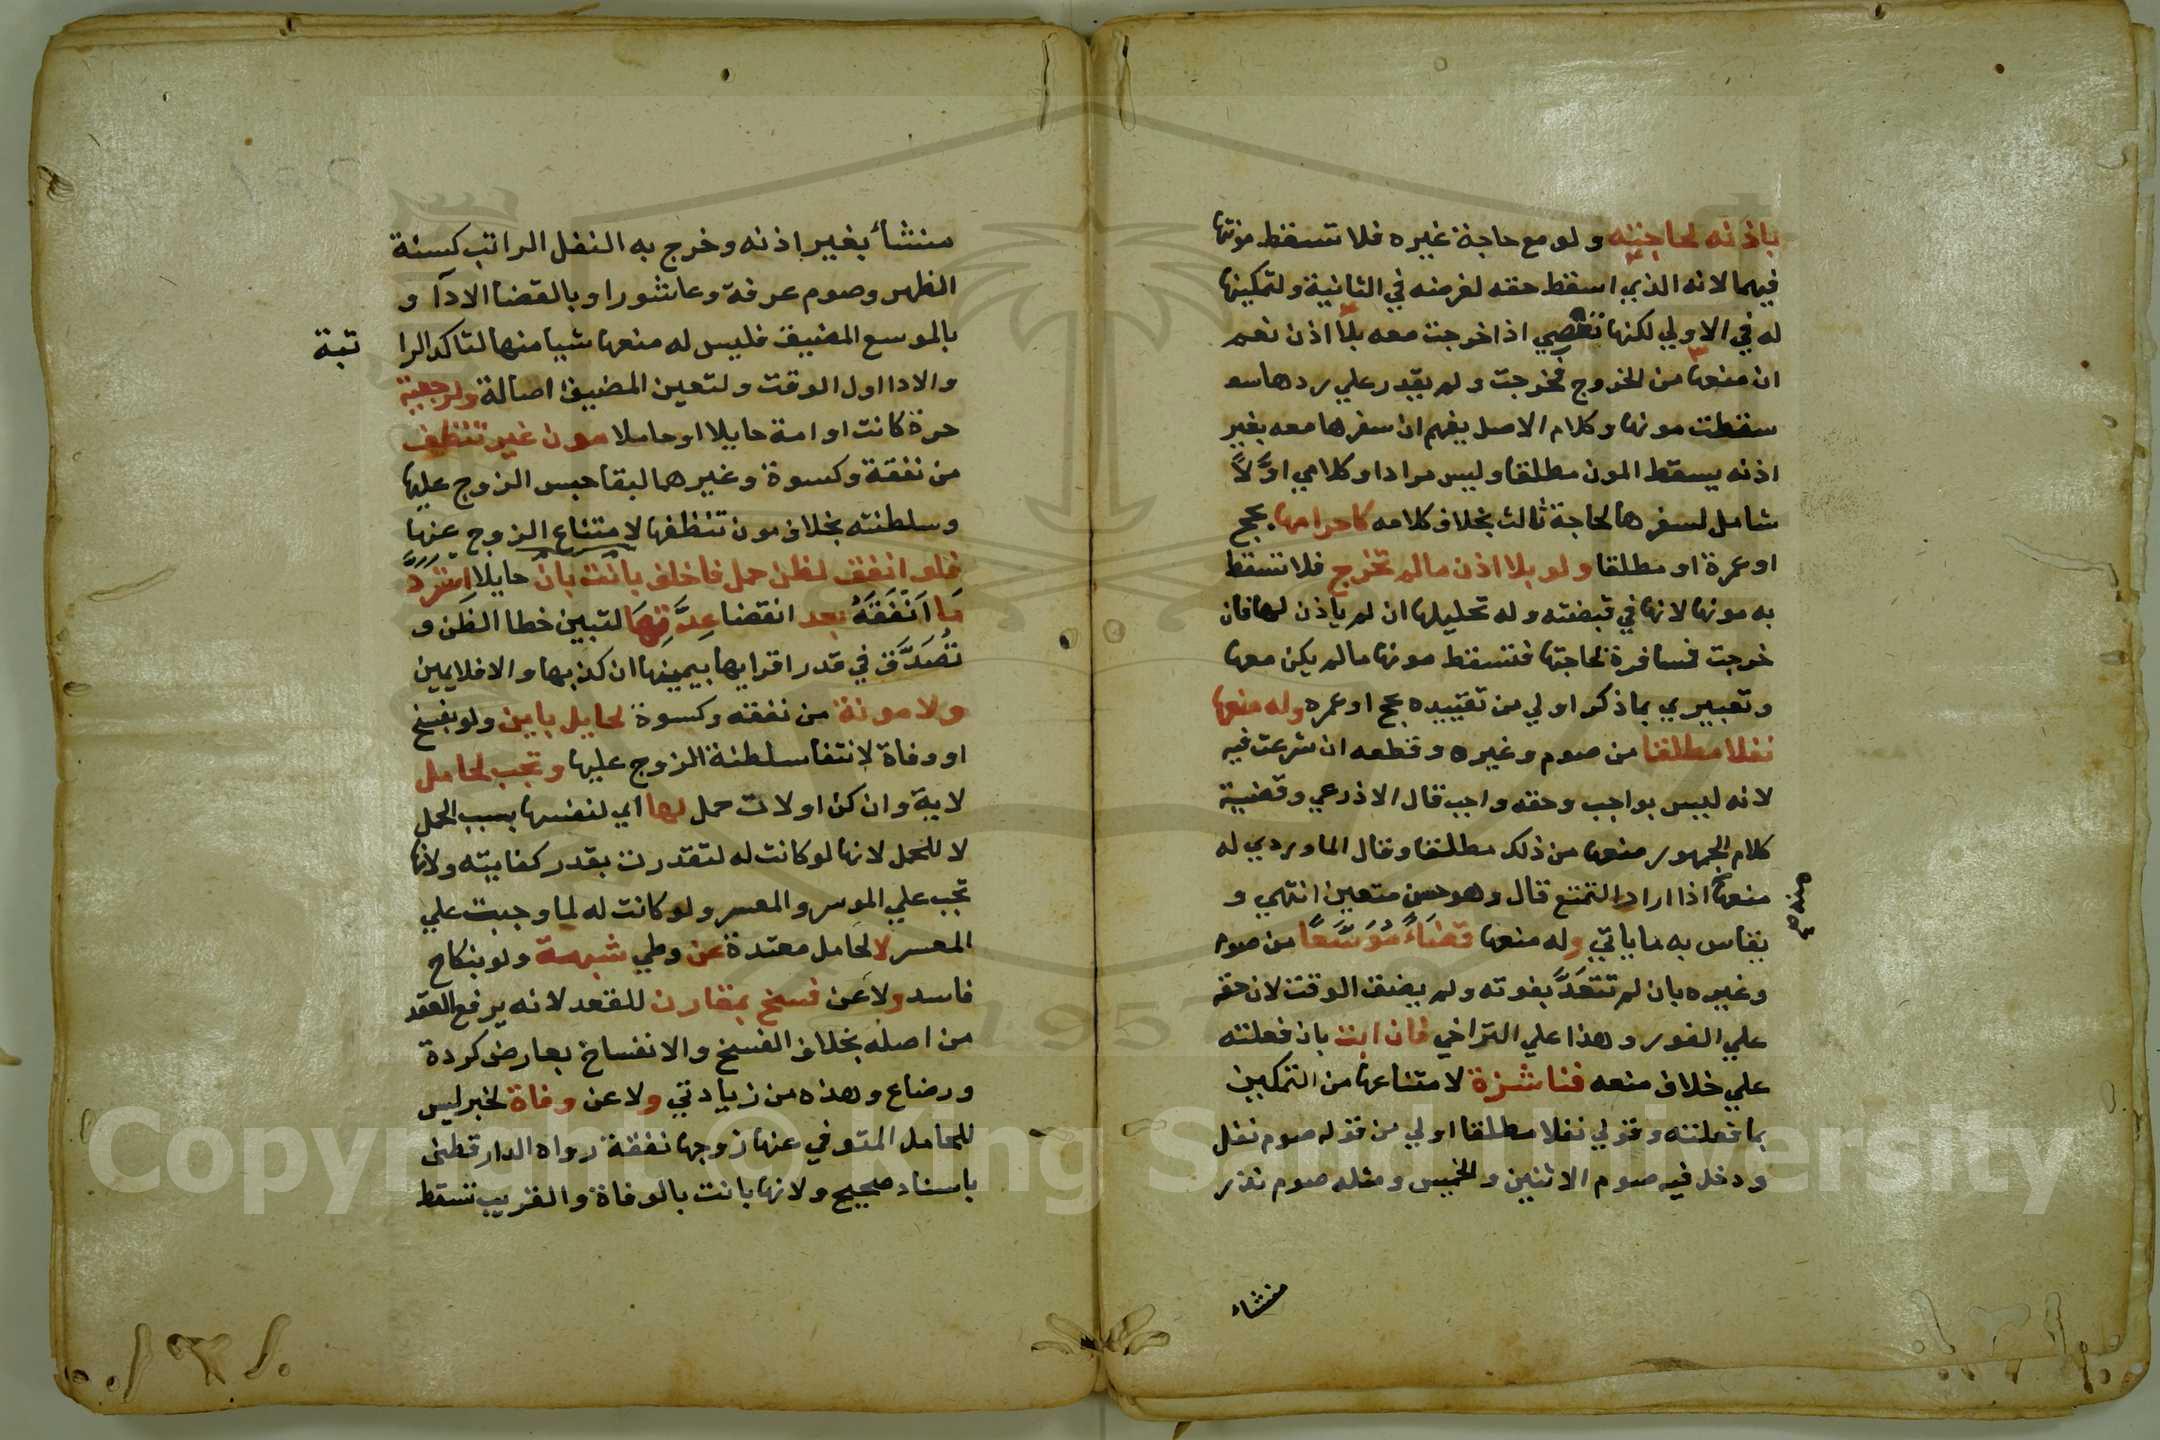 باذنه لحاجته ولو مع حاجة غيره فلا تسقط مونتها
فيهما لانه الذي اسقط حقه لغرضه في الثانية ولتمكينها
له في الاولي لكنها تعصي اذا خرجت معه بلا اذن نعم
ان منعها من الخروج فخرجت ولم يقدر علي ردها
سقطت مونها وكلام الاصل يفهم ان سفرها معه بغير
اذنه يسقط المون مطلقا وليس مرادا وكلامي اوَّلًا
شامل لسفرها لحاجة ثالث بخلاف كلامه كاحرامها بحج
او عمرة او مطلقا ولو بلا اذن مالم تخرج فلا تسقط
به مونها لانها في قبضته وله تحليلها ان لم ياذن لها فان
خرجت فمسافرة لحاجتها فتسقط مونها مالم يكن معها
وتعبيري بما ذكر اولي من تقييده بحج او عمره وله منعها
نفلا مطلقا من صوم وغيره وقطعه ان شرعت فيه
لانه ليس بواجب وحقه واجب قال الاذرعي وقضية
كلام الجمهور منعها من ذلك مطلقا وقال الماوردي له
منعها اذا اراد التمتع قال وهو حسن متعين انتهي و
يقاس به ما ياتي وله منعها قضَاءً مُوَسَّعًا من صوم
وغيره بان لم تتعَدَّ بفوته ولم يضق الوقت لان حقه
علي الفور وهذا علي التراخي فان ابت بان فعلته
علي خلاف منعه فناشزة لامتناعها من التمكين
بما فعلته وقولي نفلا مطلقا اولي من قوله صوم نفل
ودخل فيه صوم الاثنين والخميس ومثله صوم نذر
منشاء
منشأ بغير اذنه وخرج به النفل الراتب كسنة
الظهر وصوم عرفة وعاشورا وبالقضا الادآ و
بالموسع المضيق فليس له منعها شيا منها لتاكد الرا
تبة
والادا اول الوقت ولتعين المضيق اصالة ولرجعية
حرة كانت او امة حايلا او حاملا مون غير تنظيف
من نفقة وكسوة وغيرهما لبقا حبس الزوج عليها
وسلطنته بخلاف مون تنظفها لامتناع الزوج عنها
فلو انفق لظن حمل فاخلف بانت بان حايلا استَرَدَّ
مَا اَنْفَقَهُ بعد انقضا عِدَّتِهَا لتبين خطا الظن و
تُصَدَّق في قدر اقرايها بيمينها ان كذبها والا فلا يمين
ولا مونة من نفقه وكسوة لحايل باين ولو بفسخ
او وفاة لانتفا سلطنة الزوج عليها وتجب لحامل
لاية وان كن اولات حمل لها اي لنفسها بسبب الحمل
لا للحمل لانها لو كانت له لتقدرت بقدر كفايته ولانها
تجب علي الموسر والمعسر ولو كانت له لما وجبت علي
المعسر لا لحامل معتدة عن وطي شبهة ولو بنكاح
فاسد ولا عن فسخ بمقارن للقعد لانه يرفع العقد
من اصله بخلاف الفسخ والانفساخ بعارض كردة
ورضاع وهذه من زيادتي ولا عن وفاة لخبر ليس
للحامل المتوفي عنها زوجها نفقة رواه الدارقطني
باسناد صحيح ولانها بانت بالوفاة والقريب تسقط